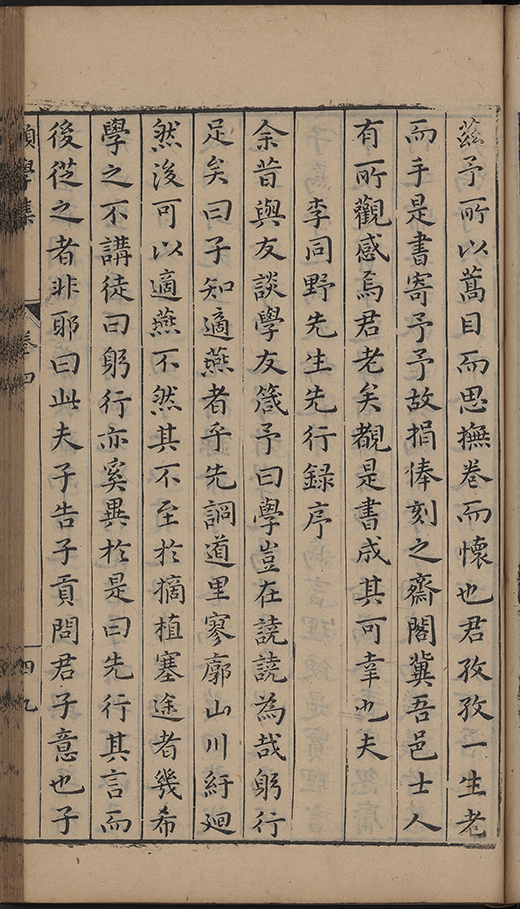 茲予所以蒿目而思撫卷而懷也君孜孜一生老
而手是書寄予予故捐俸刻之齋閣冀吾邑士人
有所觀感焉君老矣覩是書成其可幸也夫
李同野先生先行録序
余昔與友談學友箴予曰學豈在譊譊為哉躬行
足矣曰子知適燕者乎先詷道里寥廓山川紆廻
然後可以適燕不然其不至於擿植塞途者幾希
學之不講徒曰躬行亦奚異於是曰先行其言而
後從之者非耶曰此夫子告子貢問君子意也子
類學集
卷四
四九